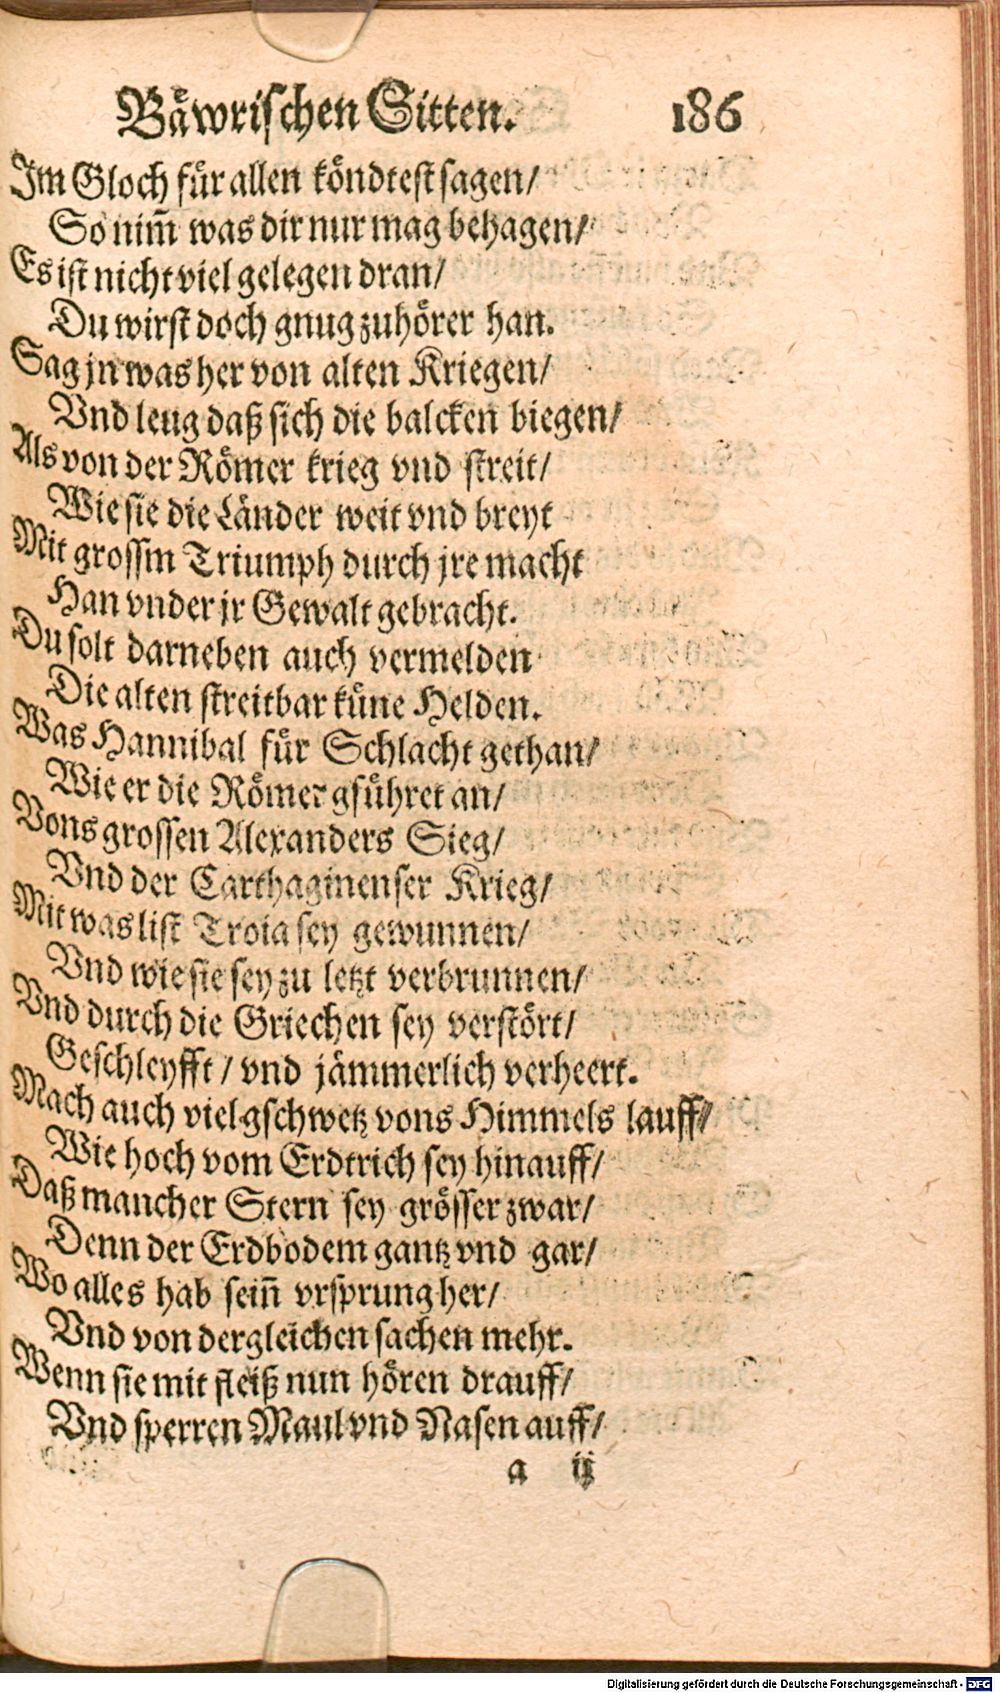 Bäwrischen Sitten. 186
Im Gloch für allen köndtest sagen/
So nim̄ was dir nur mag behagen/
Es ist nicht viel gelegen dran/
Du wirst doch gnug zuhörer han.
Sag jn was her von alten Kriegen/
Vnd leug daß sich die balcken biegen/
Als von der Römer krieg vnd streit/
Wie sie die Länder weit vnd breyt
Mit grossm Triumph durch jre macht
Han vnder jr Gewalt gebracht.
Du solt darneben auch vermelden
Die alten streitbar küne Helden.
Was Hannibal für Schlacht gethan/
Wie er die Römer gführet an/
Vons grossen Alexanders Sieg/
Vnd der Carthaginenser Krieg/
Mit was list Troia sey gewunnen/
Vnd wie sie sey zu letzt verbrunnen/
Vnd durch die Griechen sey verstört/
Geschleyfft / vnd jämmerlich verheert.
Mach auch viel gschwetz vons Himmels lauff/
Wie hoch vom Erdtrich sey hinauff/
Daß mancher Stern sey grösser zwar/
Denn der Erdbodem gantz vnd gar/
Wo alles hab sein̄ vrsprung her/
Vnd von dergleichen sachen mehr.
Wenn sie mit fleiß nun hören drauff/
Vnd sperren Maul vnd Nasen auff/
a ij
Digitalisierung gefördert durch die Deutsche Forschungsgemeinschaft - DFG